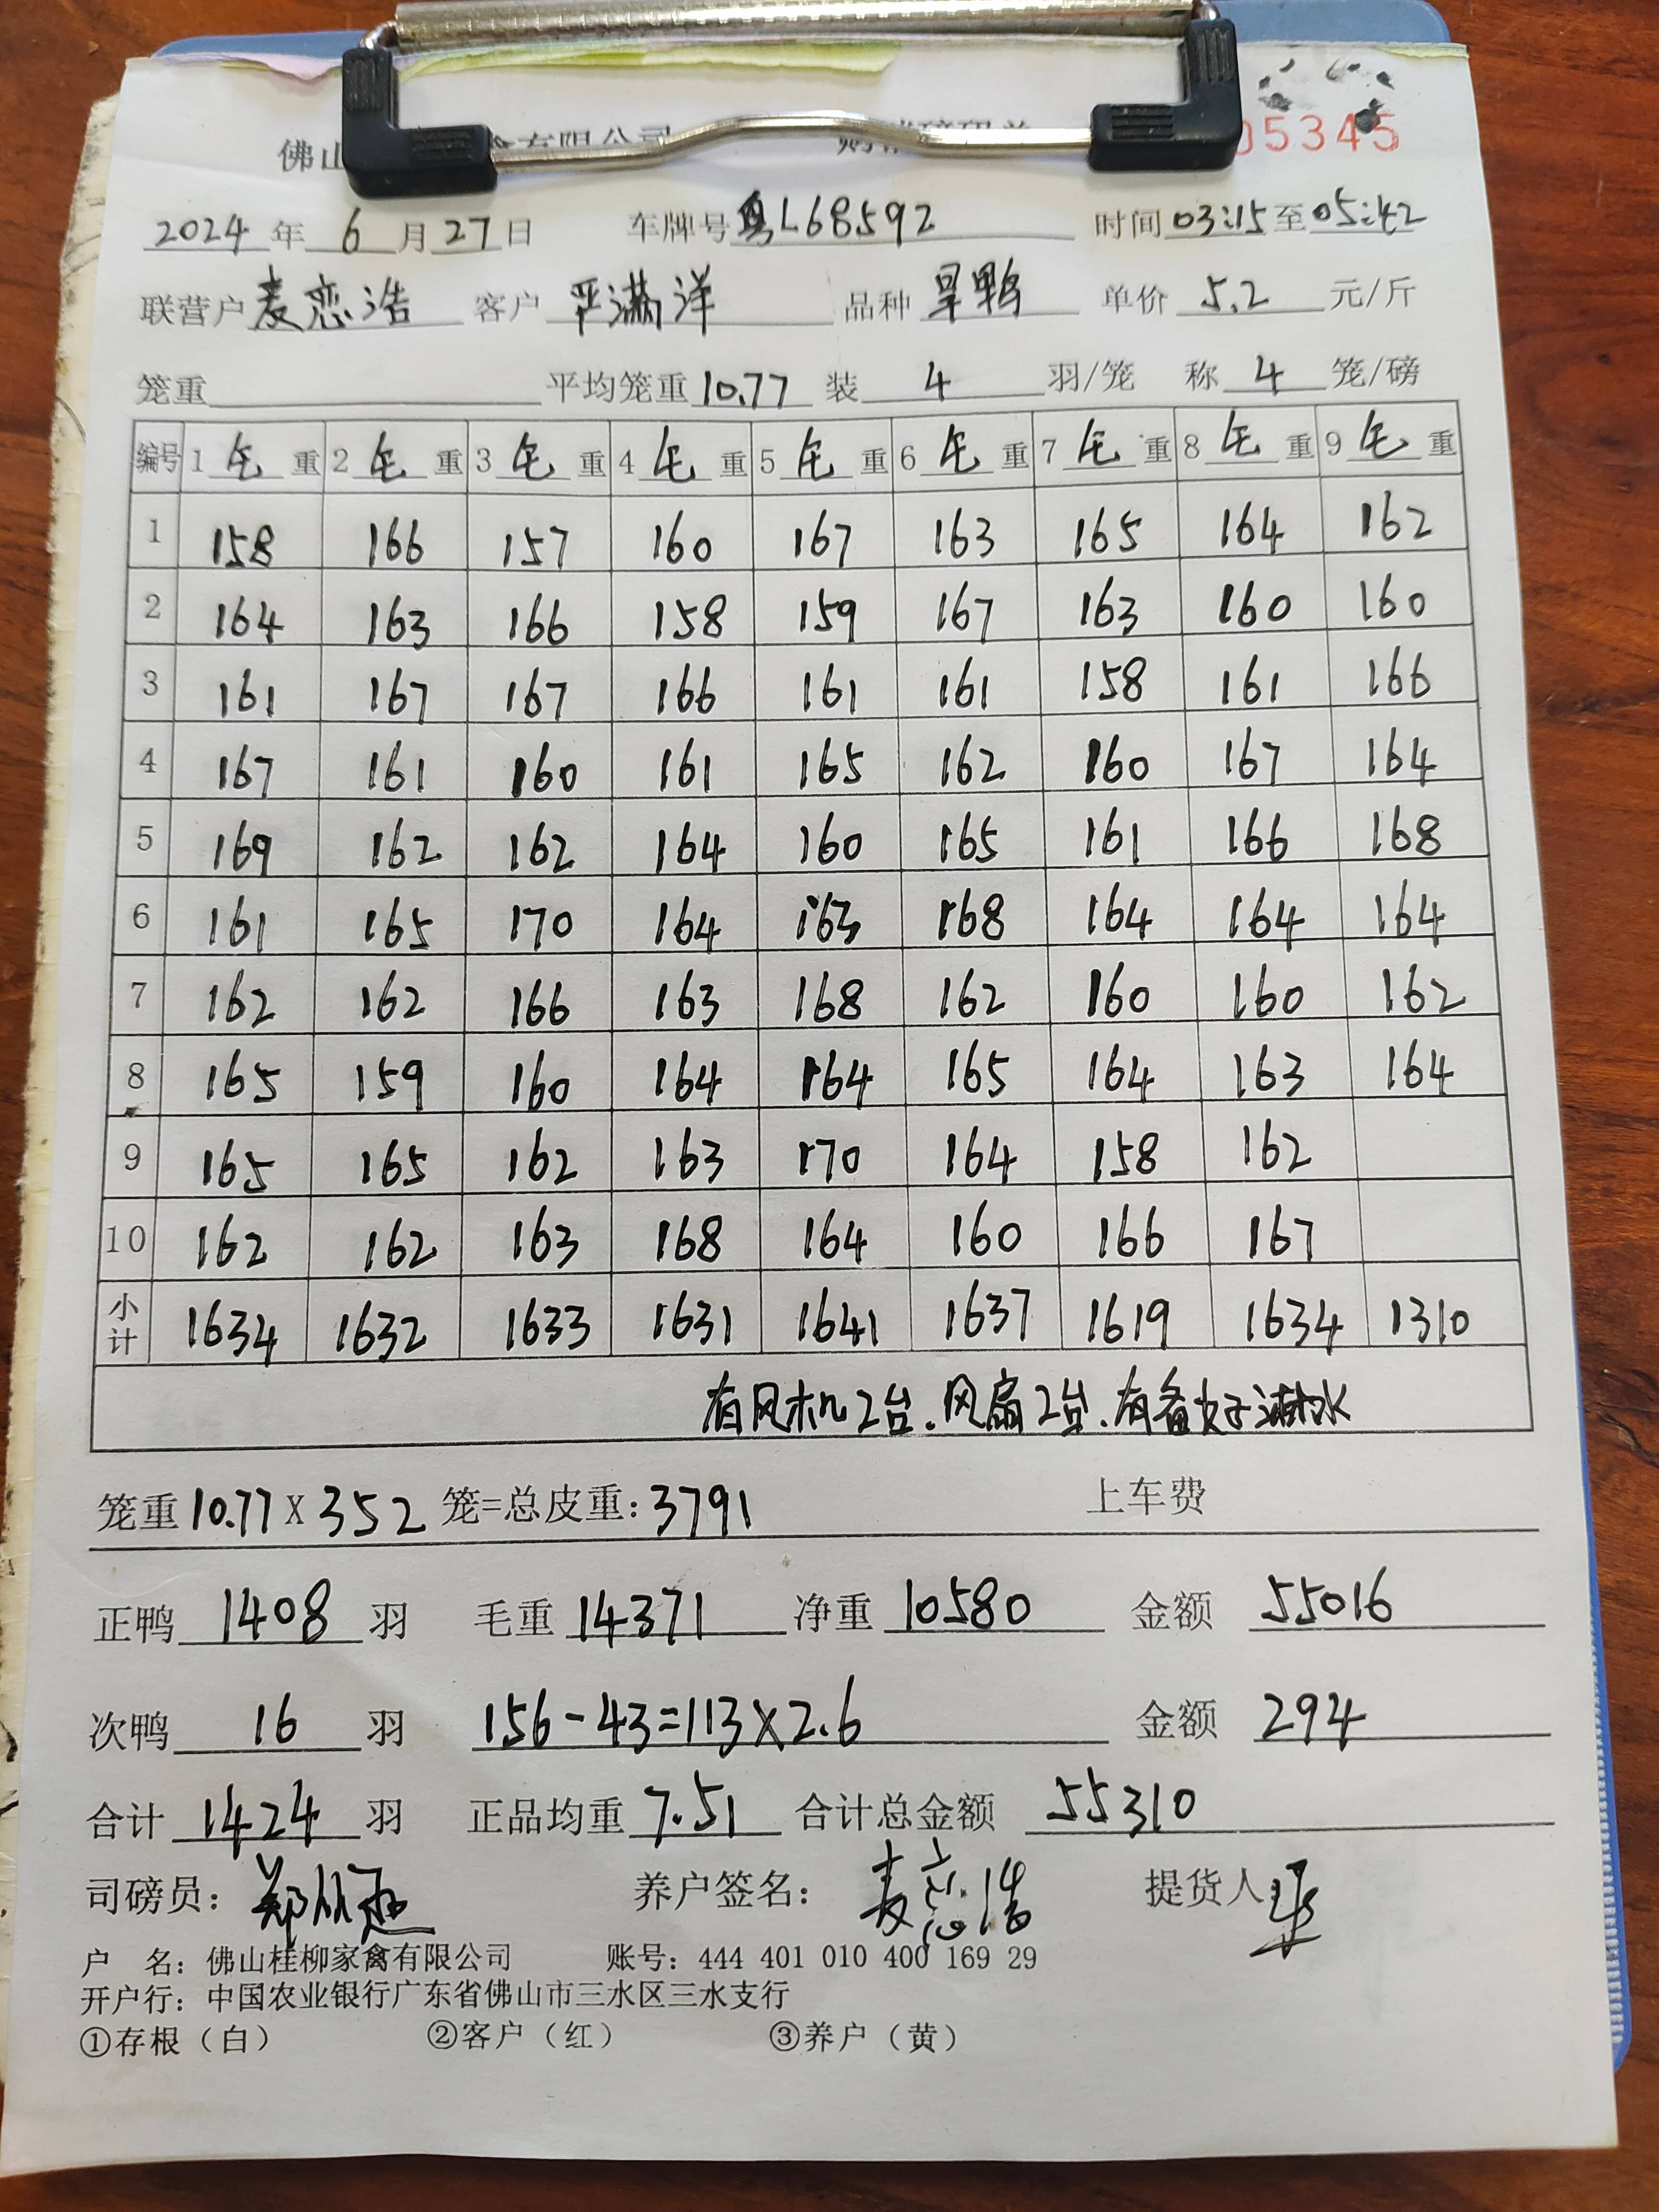 佛山 禽有限公司 05345
2024年6月27日 车牌号粤L68592 时间03:15至05:42
联营户麦恋浩 客户严满洋 品种旱鸭 单价5.2元/斤
笼重 平均笼重10.77 装4羽/笼 称4笼/磅
编号 1毛重 2毛重 3毛重 4毛重 5毛重 6毛重 7毛重 8毛重 9毛重
1 158 166 157 160 167 163 165 164 162
2 164 163 166 158 159 167 163 160 160
3 161 167 167 166 161 161 158 161 166
4 167 161 160 161 165 162 160 167 164
5 169 162 162 164 160 165 161 166 168
6 161 165 170 164 163 168 164 164 164
7 162 162 166 163 168 162 160 160 162
8 165 159 160 164 164 165 164 163 164
9 165 165 162 163 170 164 158 162
10 162 162 163 168 164 160 166 167
小计 1634 1632 1633 1631 1641 1637 1619 1634 1310
有风机2台.风扇2台.有备好淋水
笼重10.77×352笼=总皮重:3791 上车费
正鸭1408羽 毛重14371 净重10580 金额55016
次鸭16羽 156-43=113×2.6 金额294
合计1424羽 正品均重7.51 合计总金额55310
司磅员: 养户签名:麦恋浩 提货人
户 名:佛山桂柳家禽有限公司 账号:444 401 010 400 169 29
开户行:中国农业银行广东省佛山市三水区三水支行
①存根(白) ②客户(红) ③养户(黄)